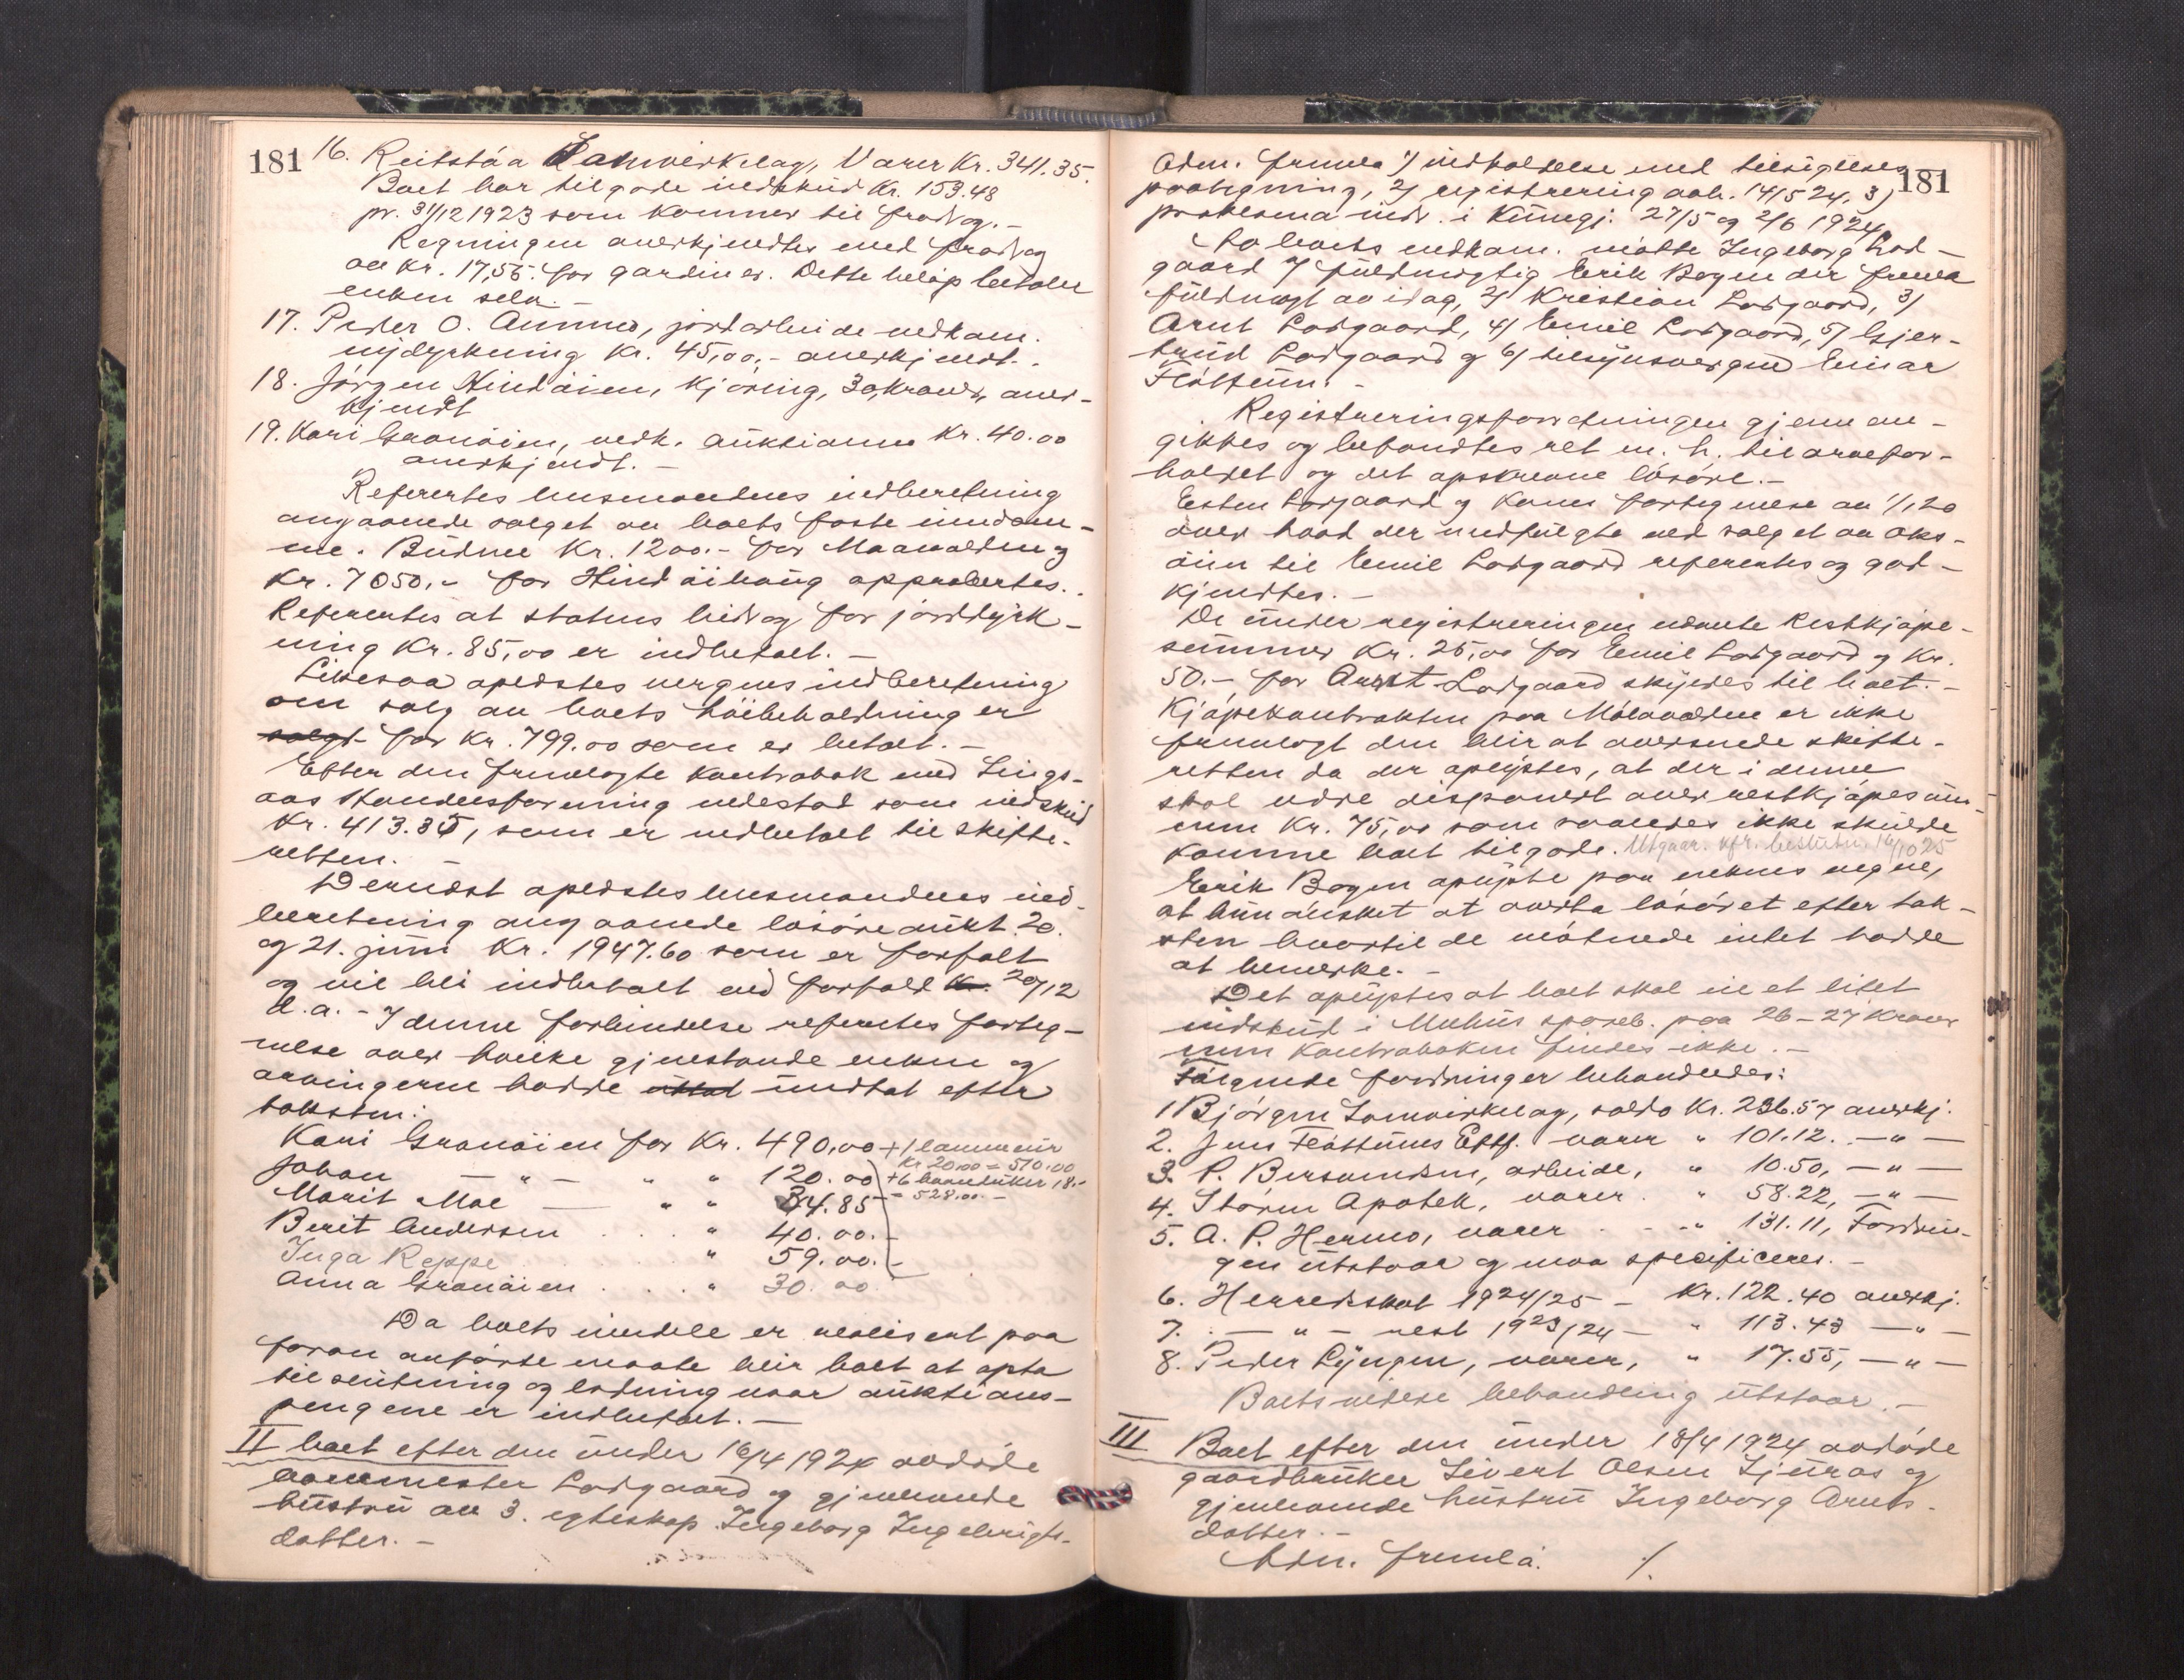 181
16. Reitstøa Samvirkelag, Varer Kr. 341.35.
Boet har tilgode indskud Kr. 153.48
pr. 31/12 1923 som kommer til fradrag.-
Regningen anerkjendtes med fradrag
av kr. 17,55. for gardiner. Dette beløp betaler
enken selv.-
17. Peder O. Aunmo, jordarbeide vedkom.
nydyrkning kr. 45,00,- anerkjendt.-
18. Jörgen Hindöien, kjöring, 30, kroner, aner-
kjendt
19. Kari Granöien, vedk. auktionen Kr. 40.00
anerkjendt.-
Refereertes lensmandens indberetning
angaaende salget av boets faste eiendom-
me. Budene Kr. 1200.- for Maavolden og
Kr. 7050,- for Hindöihaug approbertes.
Refereertes at statens bidrag for jorddyrk-
ning Kr. 85,00 er indbetalt.-
Likesaa oplæstes vergens indberetning
om salg av boets höibeholdning er
solgt for Kr. 799.00 som er betalt.-
Efter den fremlagte kontrabok med Sings-
aas Handelsforening indestod som indskud
Kr. 413.35, som er indbetalt til skifte-
retten.-
Dernæst oplæstes lensmandens ind-
beretning angaaende lösöreaukt. 20.
og 21. juni Kr. 1947.60 som er forfalt
og vil bli indbetalt ved forfald 20/12
d.a.- I denne forbindelse refereertes forteg-
nelse over hvilke gjenstande enken og
arvingerne hadde uttat undtat efter
taksten:
Kari Granöien for Kr. 490,00 + 1 lammeur
Kr 20.00 = 510.00
Johan — " — " " 120.00 + 6 haandduker 18.-
= 528.00.-
Marit Moe — " " 34.85
Berit Andersen . . . " 40.00.-
Inga Reppe . . . " 59.00.-
Anna Granöien . . . " 30.00
Da boets eiendele er realisert paa
foran anförte maate blir boet at opta
til slutning og lodning naar auktions-
pengene er indbetalt.-
II boet efter den under 16/4 1924 avdöde
banemester Lodgaard og gjenlevende
hustru av 3. egteskap Ingeborg Ingebrigts-
datter.-
181
Adm. fremla 1) indkaldelse med tilsigelses
paategning, 2) registrering avh. 14/5 24, 3)
proklama indr. i Kunngj. 27/5 og 2/6 1924.
Paa boets vedkom. mötte Ingeborg Lod-
gaard v/ fuldmægtig Erik Bogen der fremla
fuldmagt av idag, 2) Kristian Lodgaard, 3)
Arnt Lodgaard, 4) Emil Lodgaard, 5) Gjer-
trud Lodgaard og 6) tilsynsvergen Einar
Flöttum.-
Registreringsforretningen gjennem-
gikkes og befandtes ret m. h. til arvefor-
holdet og det opskrevne lösöre.-
Esten Lodgaard og Kones fortegnelse av 1/1 20
over hvad der medfulgte ved salget av Oks-
öien til Emil Lodgaard refereertes og god-
kjendtes.-
De under registreringen nævnte Restkjöpe-
summer Kr. 25,00 for Emil Lodgaard og Kr.
50.- for Arnt Lodgaard skyldes til boet.-
Kjöpekontrakten paa Molavolden er ikke
fremlagt den blir at oversende skifte-
retten da der oplystes, at der i denne
skal være disponert over restkjöpesum-
men Kr. 75,00 som saaledes ikke skulde
komme boet tilgode. Utgaar. kfr. beslutn. 14/10 25
Erik Bogen oplyste paa enkens vegne,
at hun önsket at overta lösöret efter tak-
sten hvortil de mötende intet hadde
at bemerke.-
Det oplystes at boet skal eie et litet
indskud i Melhus spareb. paa 26-27 kroner
men kontraboken findes ikke.-
Fölgende fordringer behandledes:
1 Björgen Samvirkelag, saldo Kr. 236.57 anerkj.
2. Jens Flöttums Eftf. varer " 101.12. —"—
3. P. Bersvendsen, arbeide, " 10.50, —"—
4. Stören Apotek, varer. " 58.22, —"—
5. A. P. Hermo, varer . - " 131.11, Fordrin-
gen utstaar og maa specificeres.-
6. Herredsskat 1924/25 - Kr. 122.40 anerkj.
7. . — " — rest 1923/24 — " 113.43 —"—
8. Peder Lyngen, varer, " 17.55, —"—
Boets videre behandling utstaar.-
III Boet efter den under 18/4 1924 avdöde
gaardbruker Sivert Olsen Sjuraas og
gjenlevende hustru Ingeborg Arnts-
datter.-
Adm. fremla. ./.